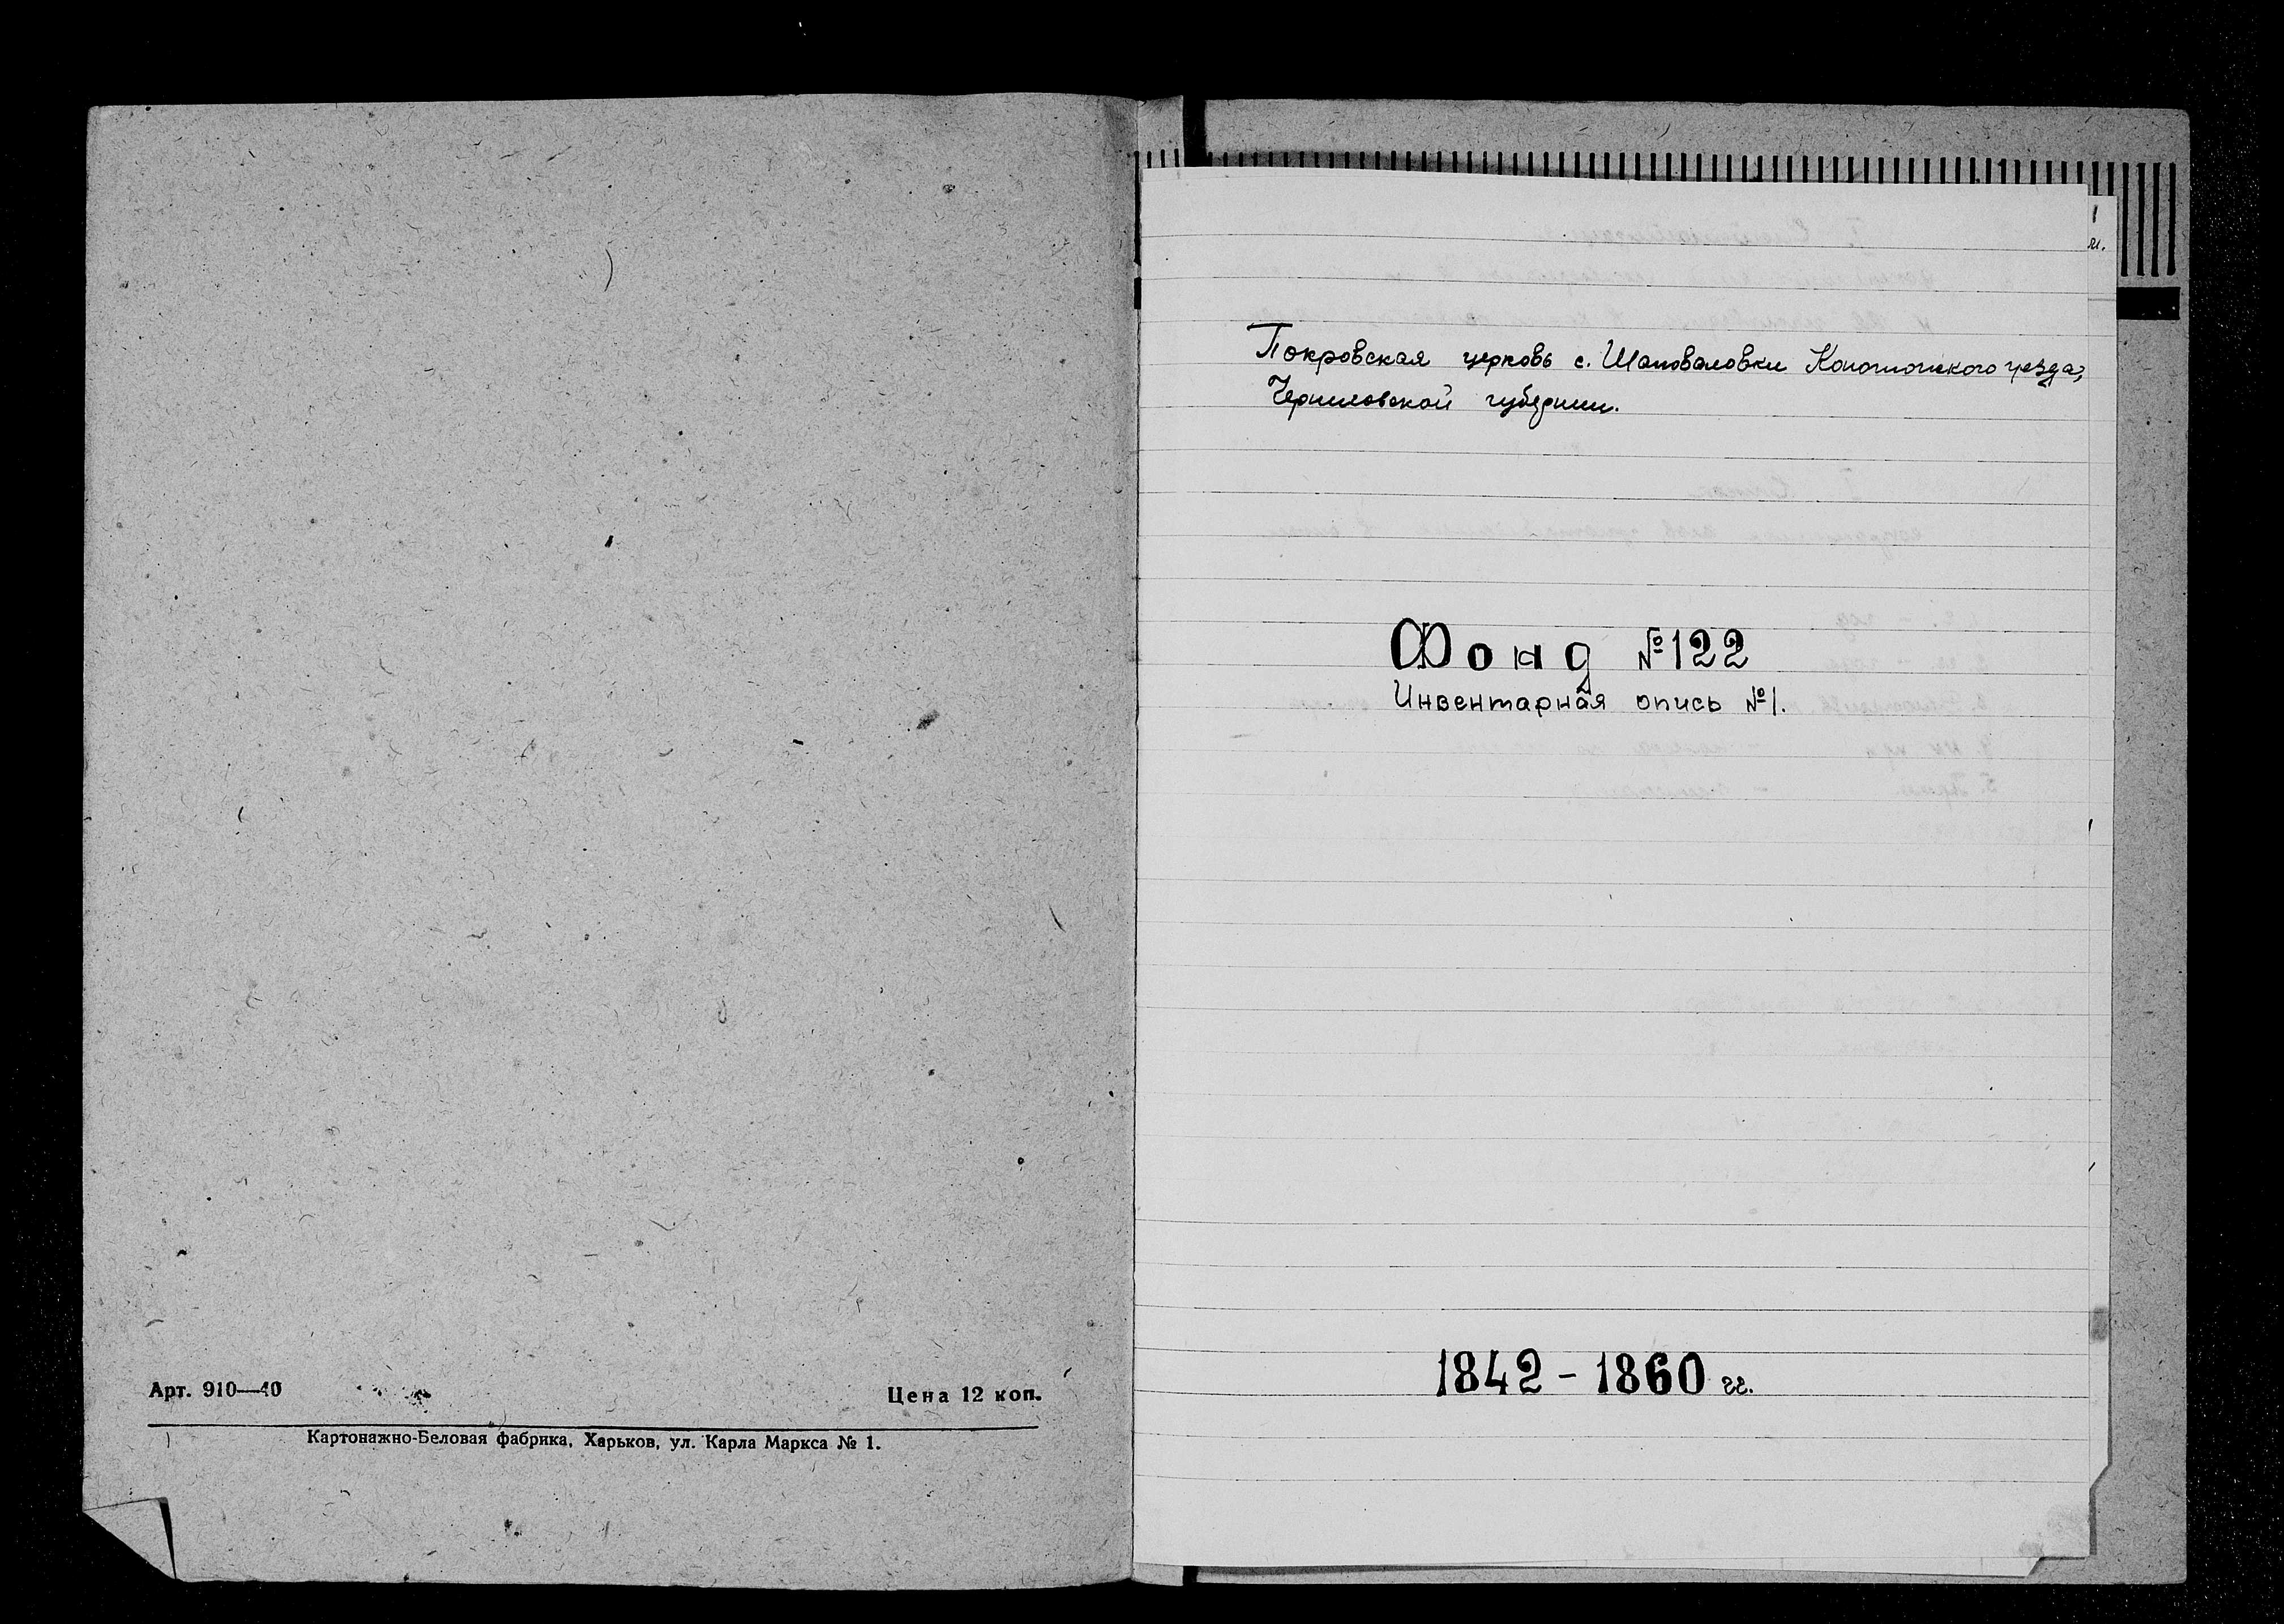 Арт. 910—40
Цена 12 коп.
Картонажно-Беловая фабрика, Харьков, ул. Карла Маркса № 1.
Покровская церковь с. Шаповаловки Конотопского уезда,
Черниговской губернии.
Фонд №122
Инвентарная опись №1.
1842 - 1860 гг.